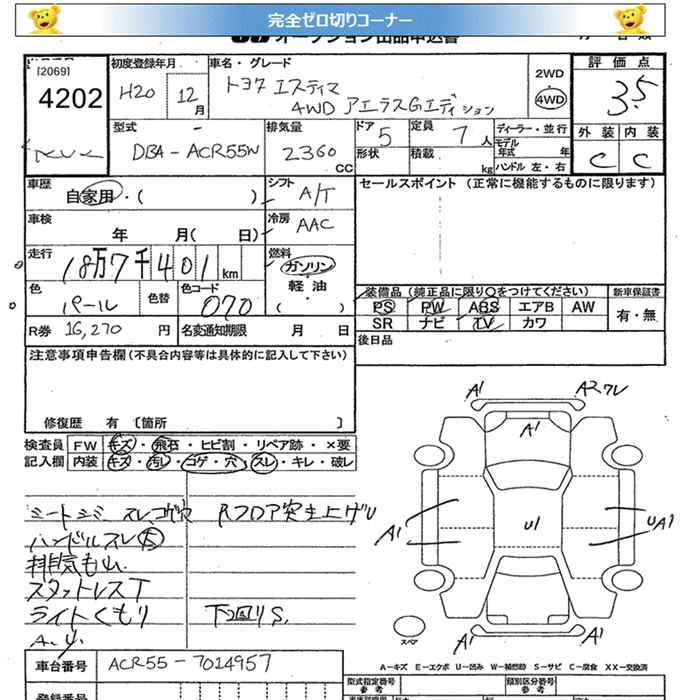 完全ゼロ切りコーナー
オークション出品申込書
[2069]
4202
初度登録年月
H20 12月
車名・グレード
トヨタ エスティマ
4WD アエラスGエディション
2WD
4WD
評価点
3.5
型式
DBA-ACR55W
排気量
2360
CC
ドア 5
定員 7人
形状
積載 kg
ディーラー・並行
モデル年式 年
ハンドル 左・右
外装 内装
C C
車歴
自家用・( )
シフト A/T
セールスポイント (正常に機能するものに限ります)
車検
年 月( 日)
冷房 AAC
走行
18万7千401km
燃料
ガソリン
軽油
( )
色
パール
色替
色コード
070
装備品(純正品に限り○をつけてください)
新車保証書
PS PW ABS エアB AW
有・無
SR ナビ TV カワ
R券 16,270円
名変通知期限 月 日
後日品
注意事項申告欄(不具合内容等は具体的に記入して下さい)
修復歴 有〔箇所 〕
検査員記入欄
FW キズ・飛石・ヒビ割・リペア跡・×要
内装 キズ・汚レ・コゲ・穴・スレ・キレ・破レ
シートシミ スレ、コゲ穴 Rフロア突き上げU
ハンドルスレ大
排気もれ
スタットレスT
ライトくもり 下回りS.
A1 A2ワレ
A1
A1 U1 UA1
A1 A1
スペア
A-キズ E-エクボ U-凹み W-補修跡 S-サビ C-腐食 XX-交換済
車台番号
ACR55-7014957
登録番号
型式指定番号 参考
類別区分番号 参考